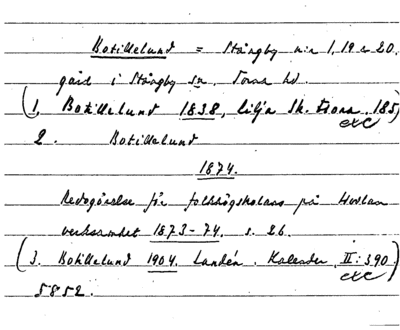 Botillelund = Stångby n:r 1, 19 o 20.
gård i Stångby sn. Torna hd.
(1. Botillelund 1838, Lilja Sk. 185)
exc
2. Botillelund
1874.
Redogörelse för folkhögskolans på Hvilan
verksamhet 1873-74. s. 26.
(3. Botillelund 1904. Landén. Kalender. II:390)
exc
5852.